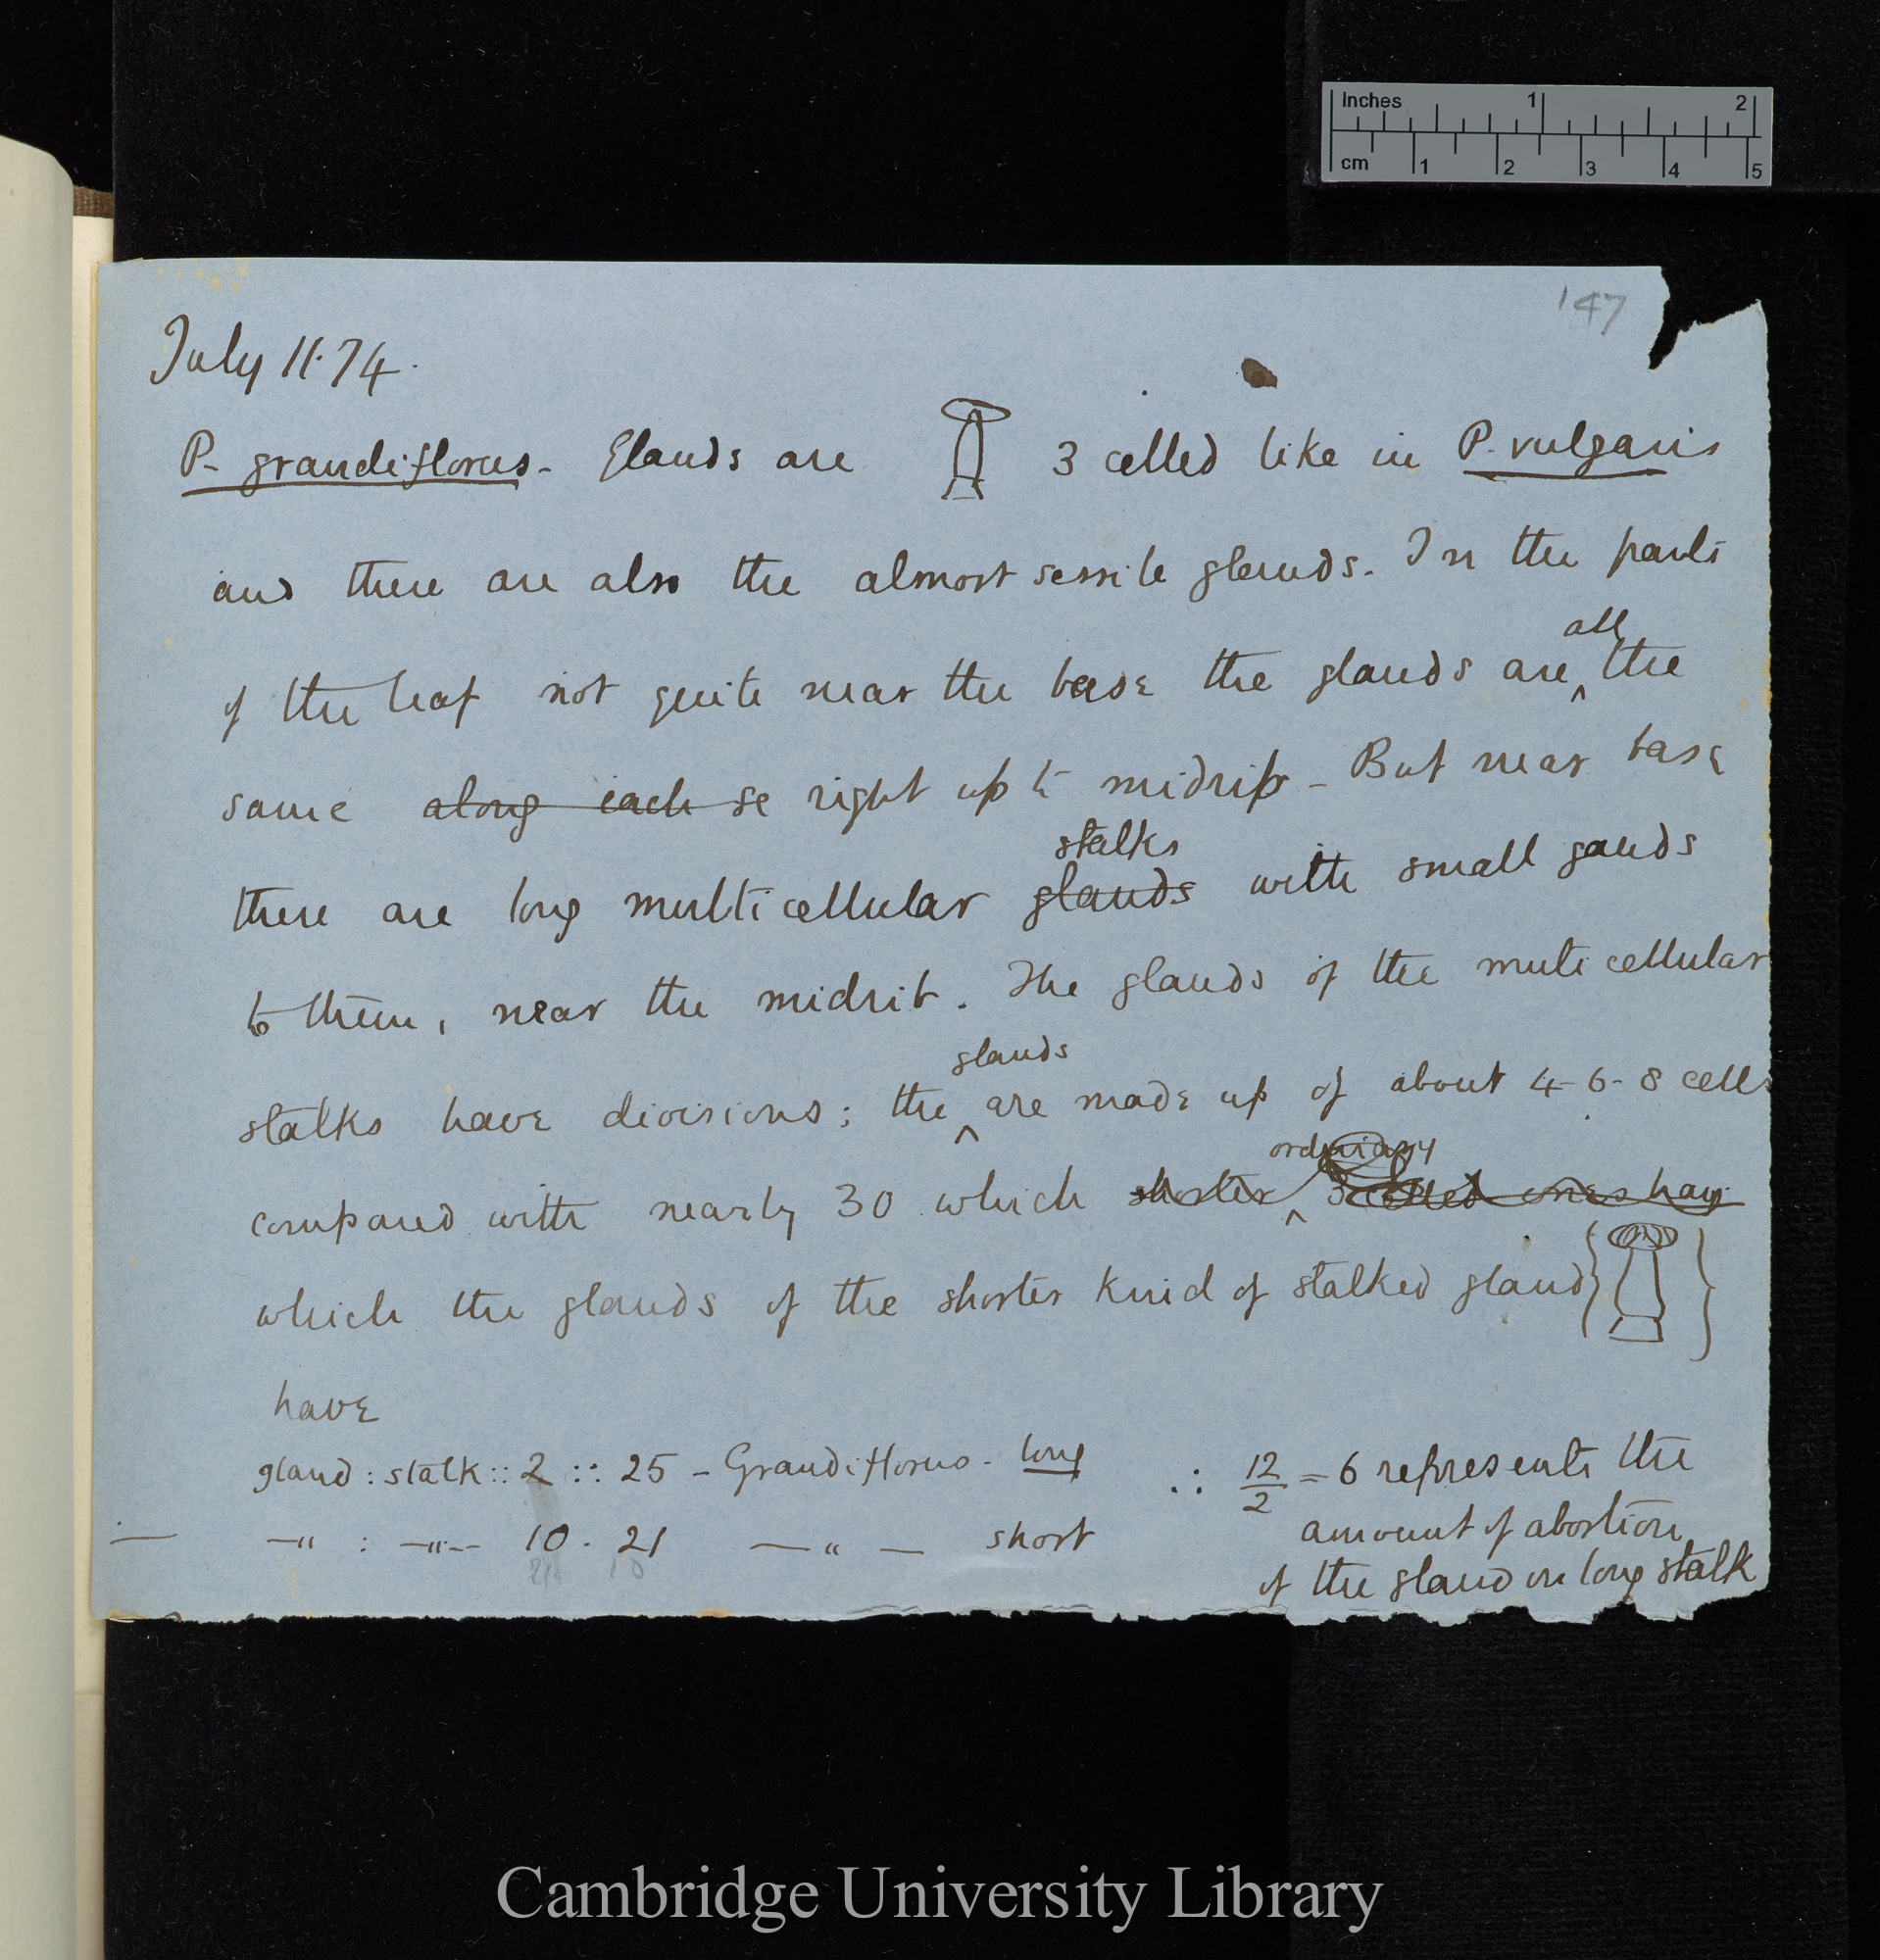 Inches 1 2
cm 1 2 3 4 5
147
July 11.74.
P. grandiflorus. Glands are 3 celled like in P. vulgaris
and there are also the almost sessile glands. In the parts
all
of the leaf not quite near the base the glands are ^ the
same along each se right up to midrib - But near base
stalks
there are long multicellular glands with small gands
to them, near the midrib. The glands of the multicellular
glands
stalks have divisions; the ^ are made up of about 4-6-8 cells
ordinary
compared with nearly 30 which shorter ^ 3 celled ones have
which the glands of the shorter kind of stalked gland { }
have
gland : stalk :: 2 :: 25 - Grandiflorus - long
— " : — " -- 10 . 21 — " — short
∴ 12/2 = 6 represents the
amount of abortion
of the gland on long stalk
Cambridge University Library